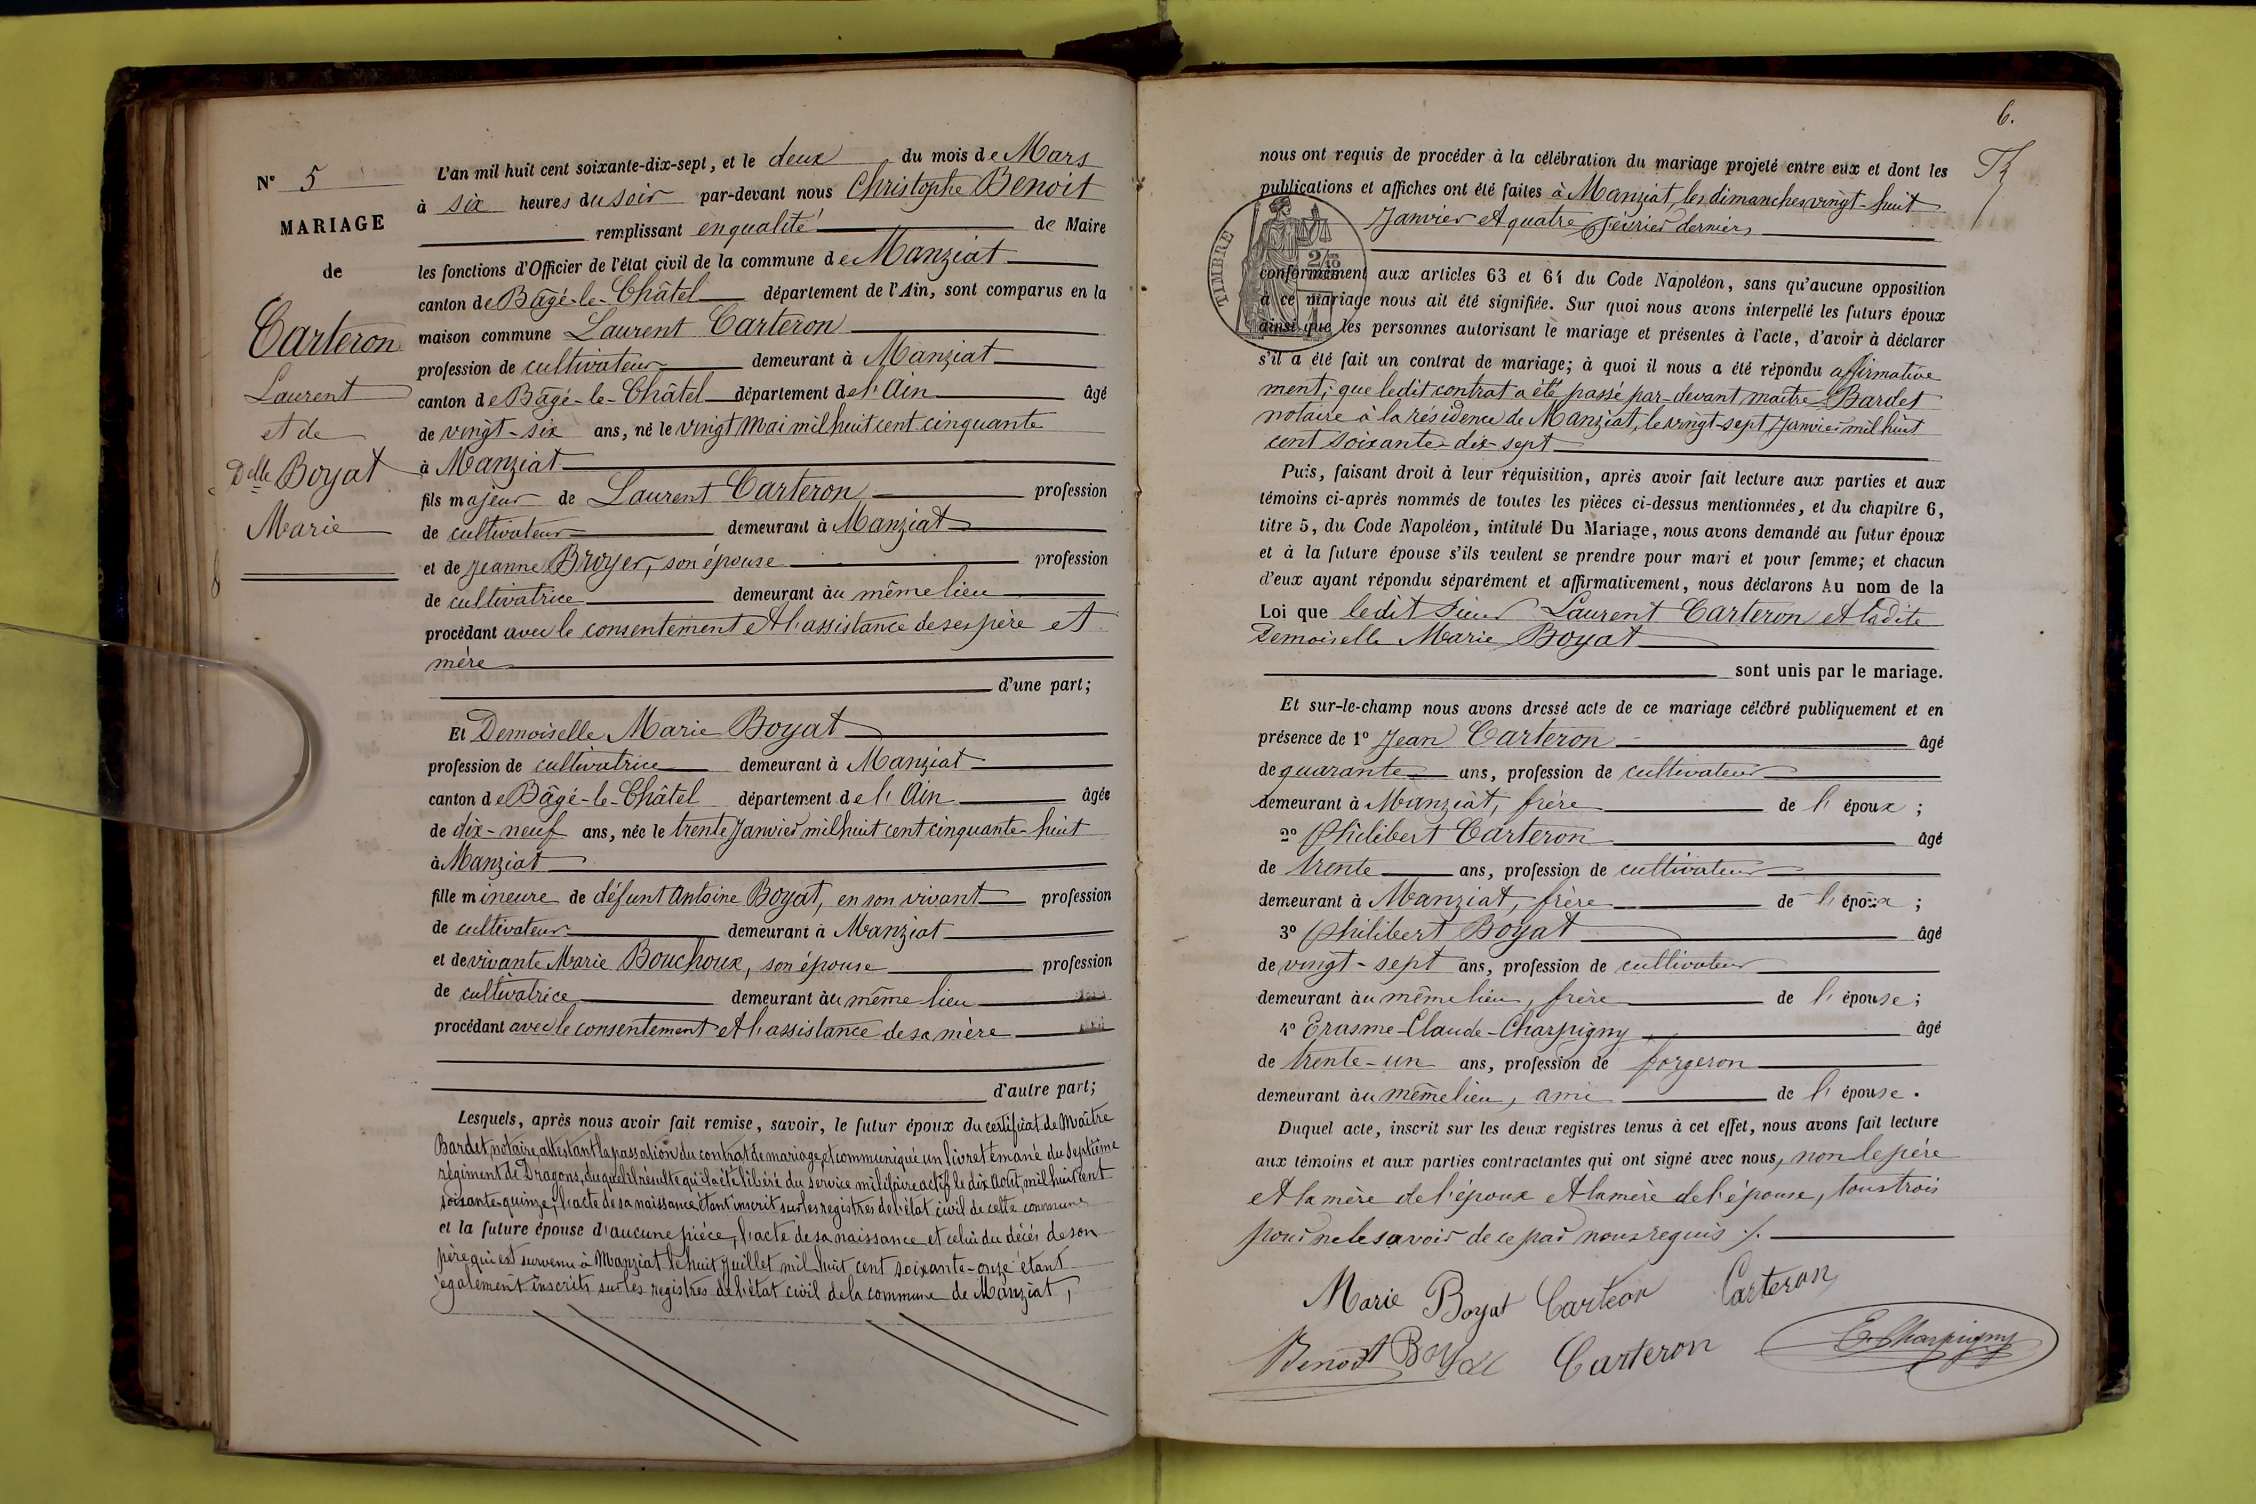 N° 5
MARIAGE
de
Carteron
Laurent
et de
Delle Boyat
Marie
L'an mil huit cent soixante-dix-sept, et le deux du mois de Mars
à six heures du soir par-devant nous Christophe Benoit
remplissant en qualité de Maire
les fonctions d'Officier de l'état civil de la commune de Manziat
canton de Bâgé-le-Châtel département de l'Ain, sont comparus en la
maison commune Laurent Carteron
profession de cultivateur demeurant à Manziat
canton de Bâgé-le-Châtel département de l'Ain âgé
de vingt-six ans, né le vingt Mai mil huit cent cinquante
à Manziat
fils majeur de Laurent Carteron profession
de cultivateur demeurant à Manziat
et de Jeanne Broyer, son épouse profession
de cultivatrice demeurant au même lieu
procédant avec le consentement et l'assistance de ses père et
mère
d'une part;
Et Demoiselle Marie Boyat
profession de cultivatrice demeurant à Manziat
canton de Bâgé-le-Châtel département de l'Ain âgée
de dix-neuf ans, née le trente Janvier mil huit cent cinquante-huit
à Manziat
fille mineure de défunt Antoine Boyat, en son vivant profession
de cultivateur demeurant à Manziat
et de vivante Marie Bouchoux, son épouse profession
de cultivatrice demeurant au même lieu
procédant avec le consentement et l'assistance de sa mère
d'autre part;
Lesquels, après nous avoir fait remise, savoir, le futur époux du certificat de Maître
Bardet, notaire, attestant la passation du contrat de mariage, et communiqué un livret émané du septième
régiment de Dragons, duquel il résulte qu'il a été libéré du service militaire actif, le dix Août, mil huit cent
soixante-quinze, l'acte de sa naissance étant inscrit sur les registres de l'état civil de cette commune
et la future épouse d'aucune pièce, l'acte de sa naissance et celui du décès de son
père qui est survenu à Manziat le huit Juillet mil huit cent soixante-onze étant
également inscrits sur les registres de l'état civil de la commune de Manziat,
6.
nous ont requis de procéder à la célébration du mariage projeté entre eux et dont les
publications et affiches ont été faites à Manziat, les dimanches vingt-huit
Janvier et quatre Février derniers
TIMBRE
conformément aux articles 63 et 64 du Code Napoléon, sans qu'aucune opposition
à ce mariage nous ait été signifiée. Sur quoi nous avons interpellé les futurs époux
ainsi que les personnes autorisant le mariage et présentes à l'acte, d'avoir à déclarer
s'il a été fait un contrat de mariage; à quoi il nous a été répondu affirmative
ment, que ledit contrat a été passé par-devant maître Bardet
notaire à la résidence de Manziat, le vingt-sept Janvier mil huit
cent soixante-dix-sept
Puis, faisant droit à leur réquisition, après avoir fait lecture aux parties et aux
témoins ci-après nommés de toutes les pièces ci-dessus mentionnées, et du chapitre 6,
titre 5, du Code Napoléon, intitulé Du Mariage, nous avons demandé au futur époux
et à la future épouse s'ils veulent se prendre pour mari et pour femme; et chacun
d'eux ayant répondu séparément et affirmativement, nous déclarons Au nom de la
Loi que ledit Sieur Laurent Carteron et ladite
Demoiselle Marie Boyat
sont unis par le mariage.
Et sur-le-champ nous avons dressé acte de ce mariage célébré publiquement et en
présence de 1° Jean Carteron âgé
de quarante ans, profession de cultivateur
demeurant à Manziat, frère de l'époux;
2° Philibert Carteron âgé
de trente ans, profession de cultivateur
demeurant à Manziat, frère de l'époux;
3° Philibert Boyat âgé
de vingt-sept ans, profession de cultivateur
demeurant au même lieu, frère de l'épouse;
4° Erasme-Claude-Charpigny âgé
de trente-un ans, profession de forgeron
demeurant au même lieu, ami de l'épouse.
Duquel acte, inscrit sur les deux registres tenus à cet effet, nous avons fait lecture
aux témoins et aux parties contractantes qui ont signé avec nous, non le père
et la mère de l'époux et la mère de l'épouse, tous trois
pour ne le savoir de ce par nous requis ./.
Marie Boyat Carteon Carteron
Benoit Boyat Carteron E. Charpigny